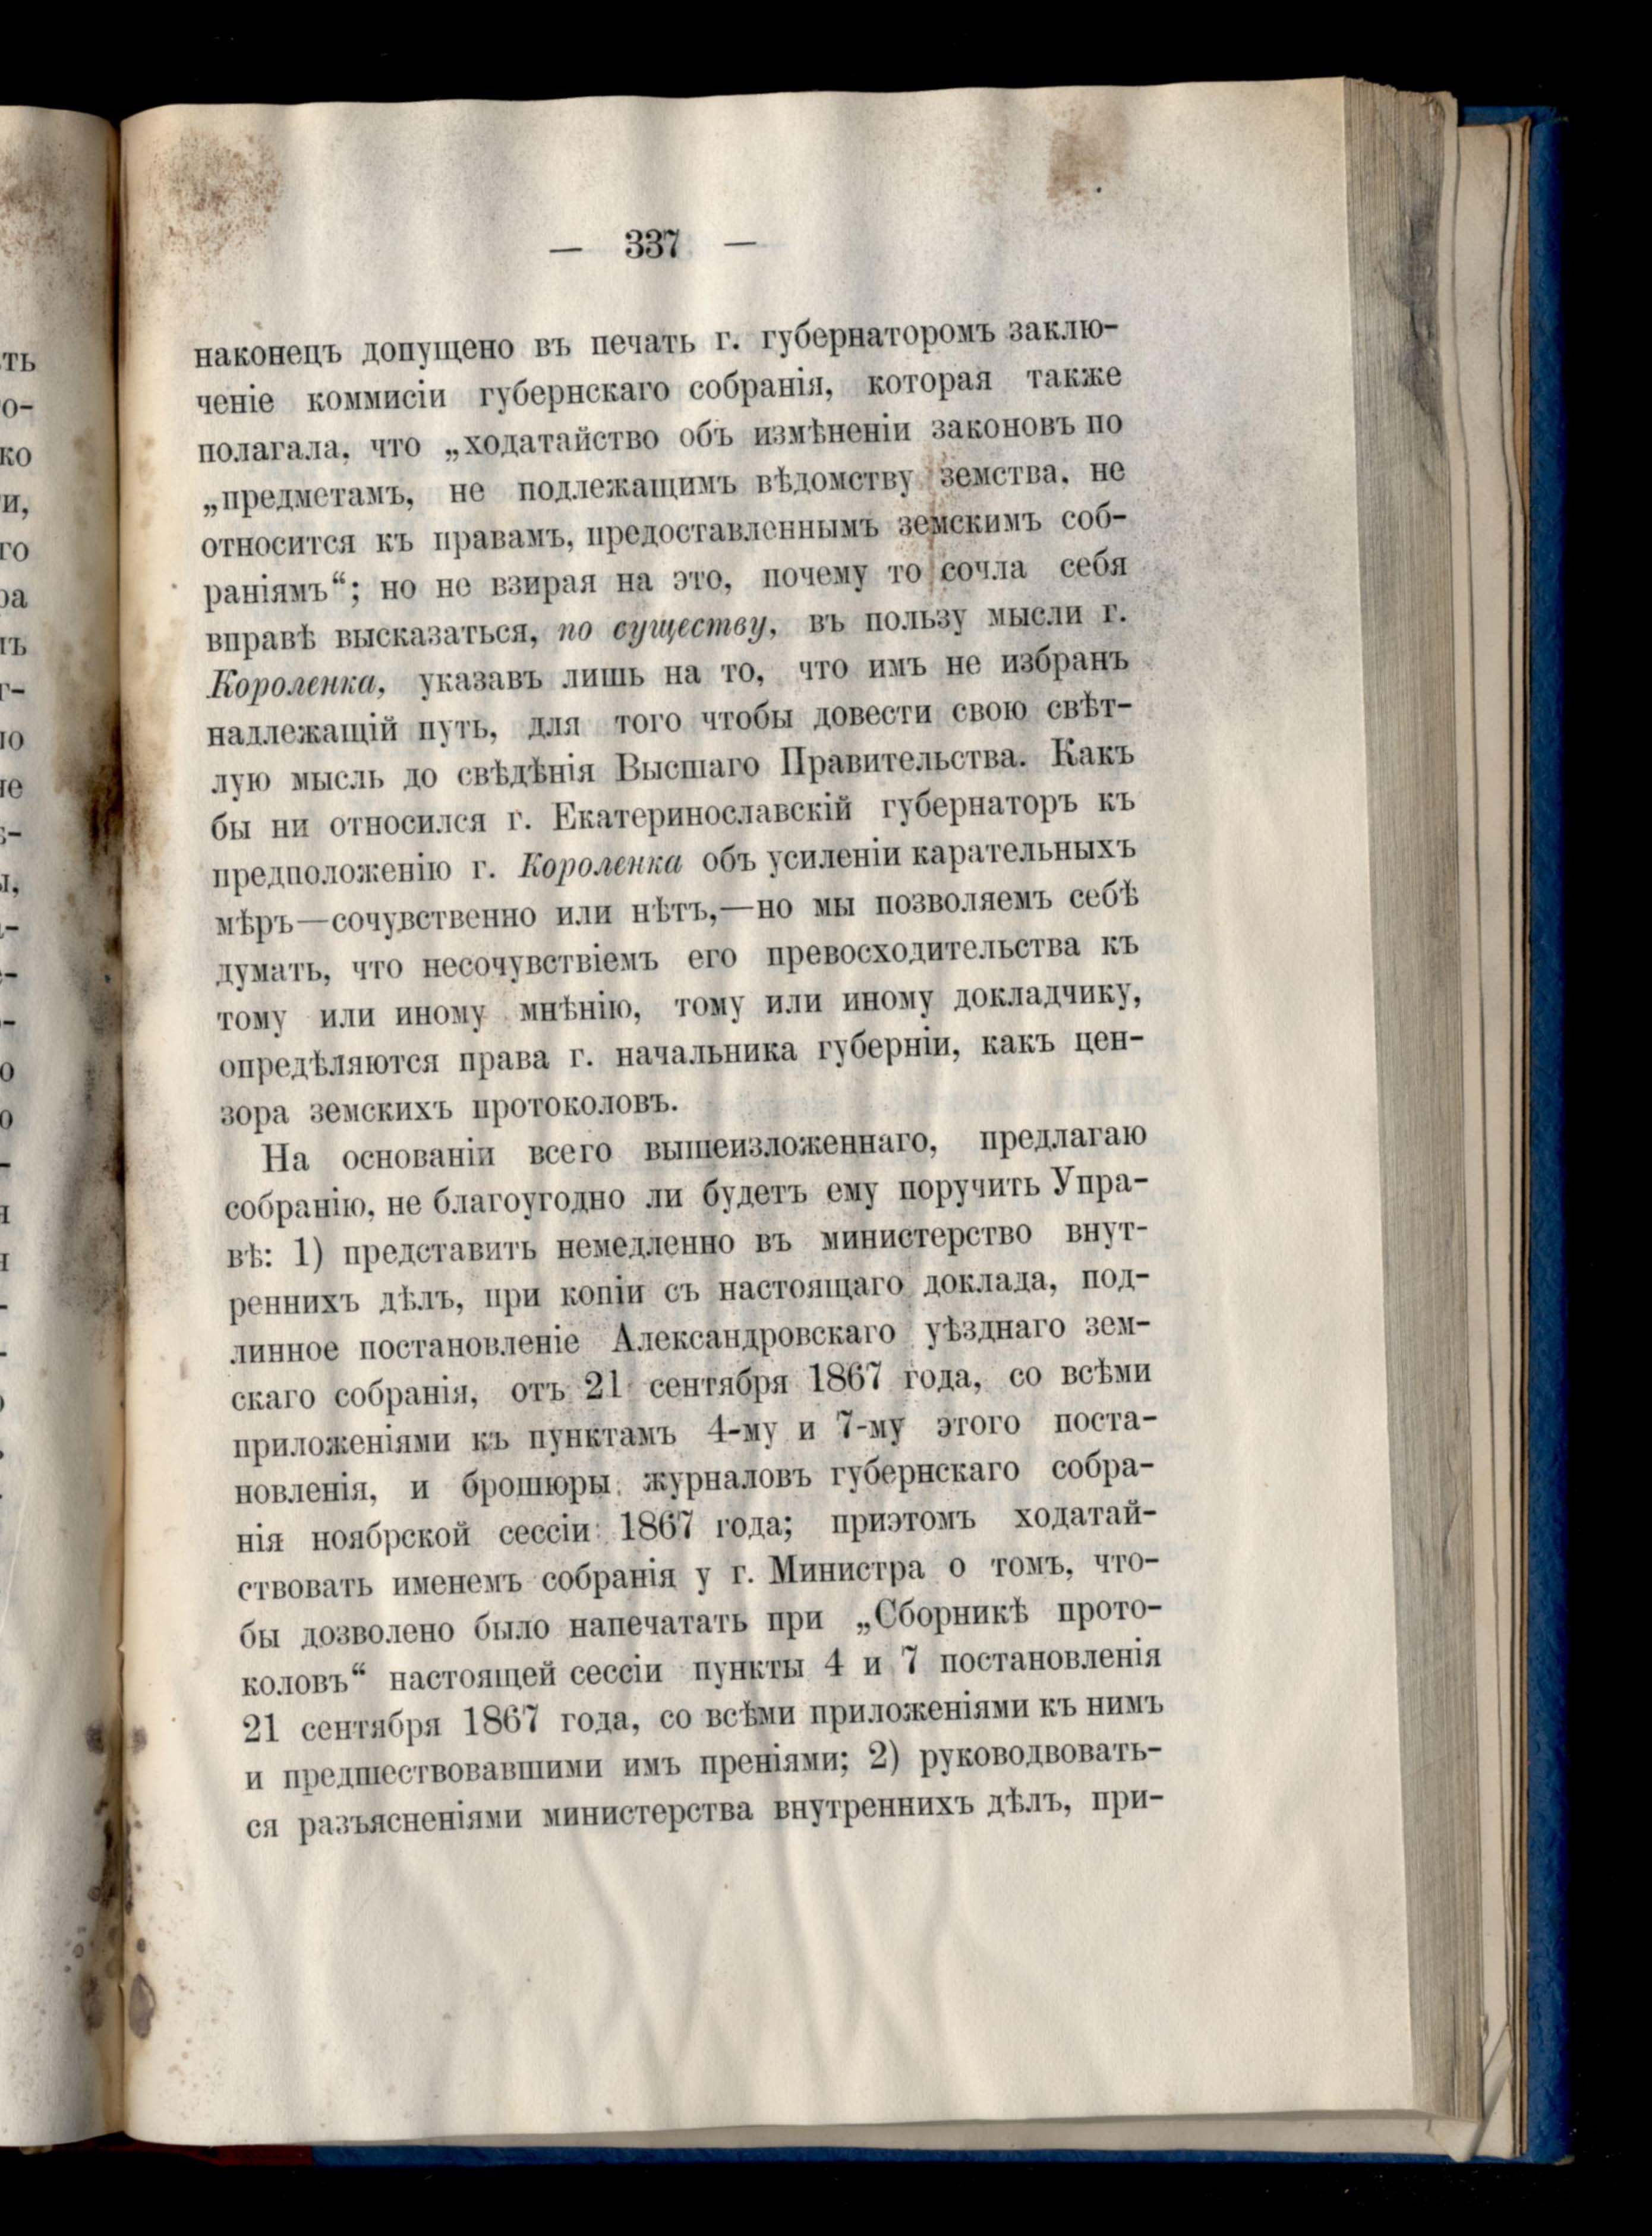 — 337 —
наконецъ допущено въ печать г. губернаторомъ заклю-
ченіе коммисіи губернскаго собранія, которая также
полагала, что „ходатайство объ измѣненіи законовъ по
„предметамъ, не подлежащимъ вѣдомству земства, не
относится къ правамъ, предоставленнымъ земскимъ соб-
раніямъ“; но не взирая на это, почему то сочла себя
вправѣ высказаться, по существу, въ пользу мысли г.
Короленка, указавъ лишь на то, что имъ не избранъ
надлежащій путь, для того чтобы довести свою свѣт-
лую мысль до свѣдѣнія Высшаго Правительства. Какъ
бы ни относился г. Екатеринославскій губернаторъ къ
предположенію г. Короленка объ усиленіи карательныхъ
мѣръ—сочувственно или нѣтъ,—но мы позволяемъ себѣ
думать, что несочувствіемъ его превосходительства къ
тому или иному мнѣнію, тому или иному докладчику,
опредѣляются права г. начальника губерніи, какъ цен-
зора земскихъ протоколовъ.
На основаніи всего вышеизложеннаго, предлагаю
собранію, не благоугодно ли будетъ ему поручить Упра-
вѣ: 1) представить немедленно въ министерство внут-
реннихъ дѣлъ, при копіи съ настоящаго доклада, под-
линное постановленіе Александровскаго уѣзднаго зем-
скаго собранія, отъ 21 сентября 1867 года, со всѣми
приложеніями къ пунктамъ 4-му и 7-му этого поста-
новленія, и брошюры журналовъ губернскаго собра-
нія ноябрской сессіи 1867 года; приэтомъ ходатай-
ствовать именемъ собранія у г. Министра о томъ, что-
бы дозволено было напечатать при „Сборникѣ прото-
коловъ“ настоящей сессіи пункты 4 и 7 постановленія
21 сентября 1867 года, со всѣми приложеніями къ нимъ
и предшествовавшими имъ преніями; 2) руководвовать-
ся разъясненіями министерства внутреннихъ дѣлъ, при-